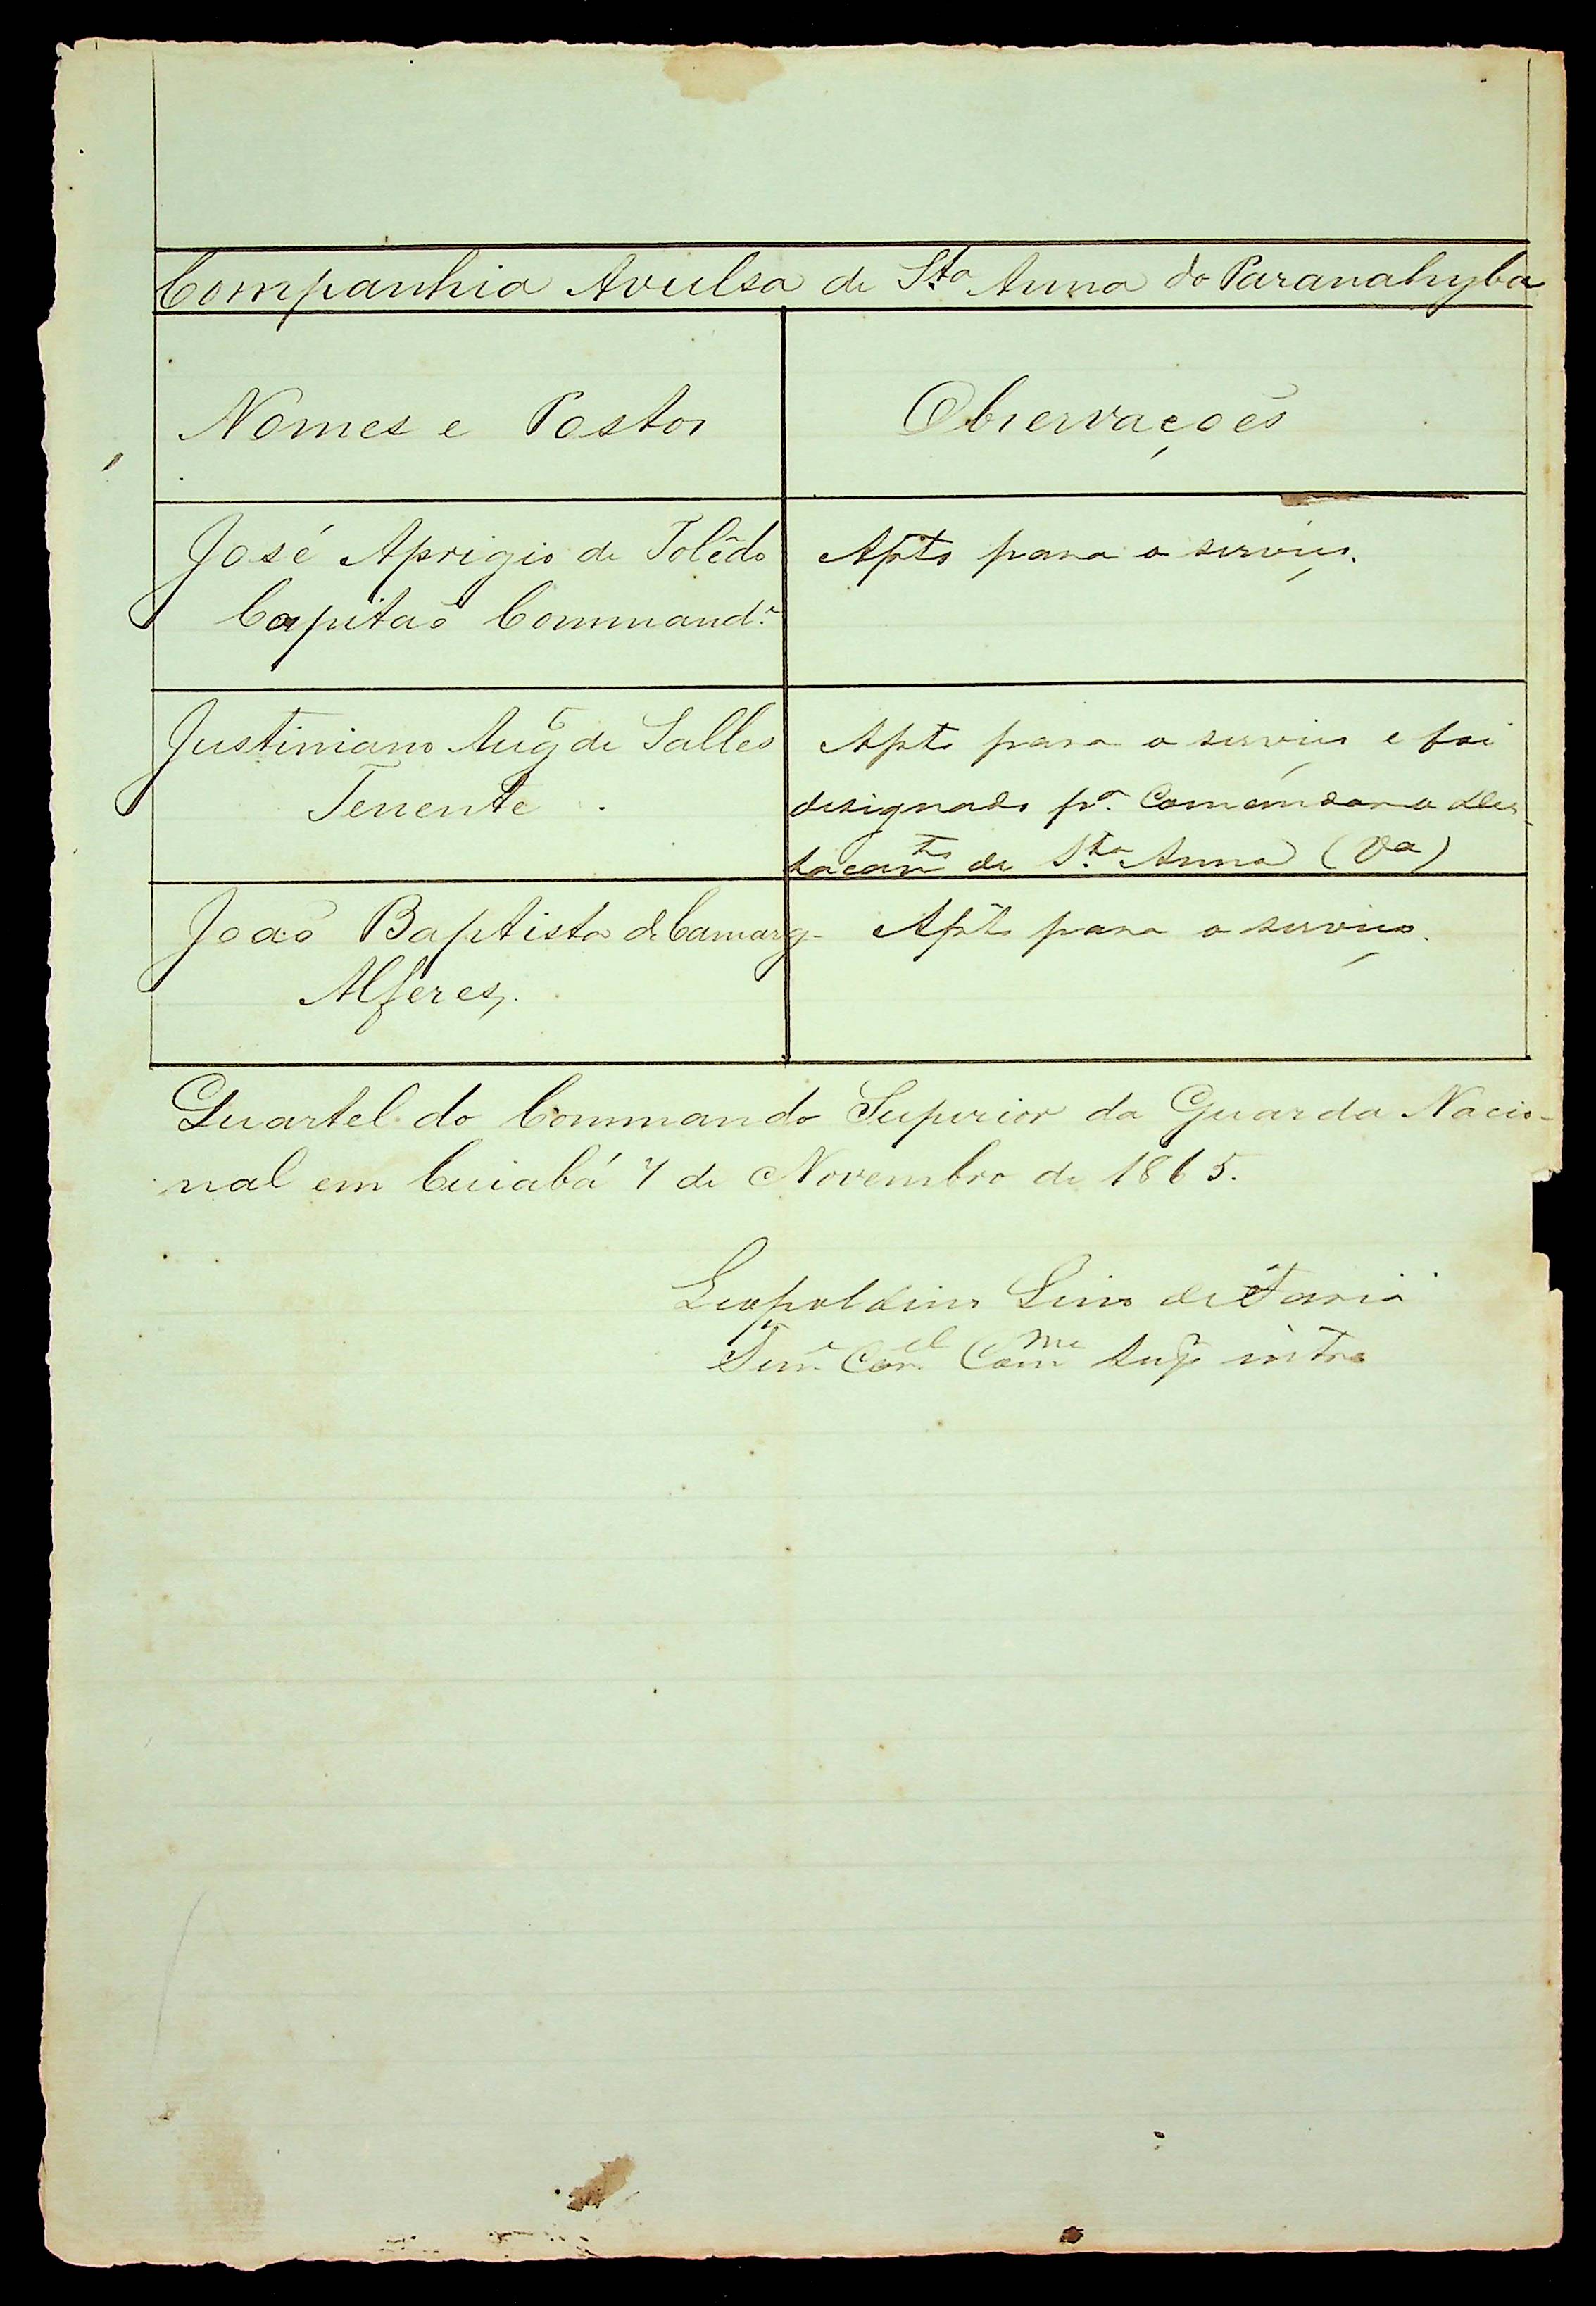 Companhia Avulsa de Sta Anna do Paranahyba
Nomes e Postos
Observaçoẽs
José Aprigio de Tolêdo
Capitaõ Command.e
Apto para o serviço.
Justiniano Augto de Salles
Tenente
Apto para o serviço e foi
designado pa. Comandar o Des-
tacamto de Sta Anna (Va)
Joaõ Baptista de Camargo
Alferes,
Apto para o serviço.
Quartel do Commando Superior da Guarda Nacio-
nal em Cuiabá 7 de Novembro de 1865.
Leopoldino Lino de Faria
Tene Corel Comme Supr intro